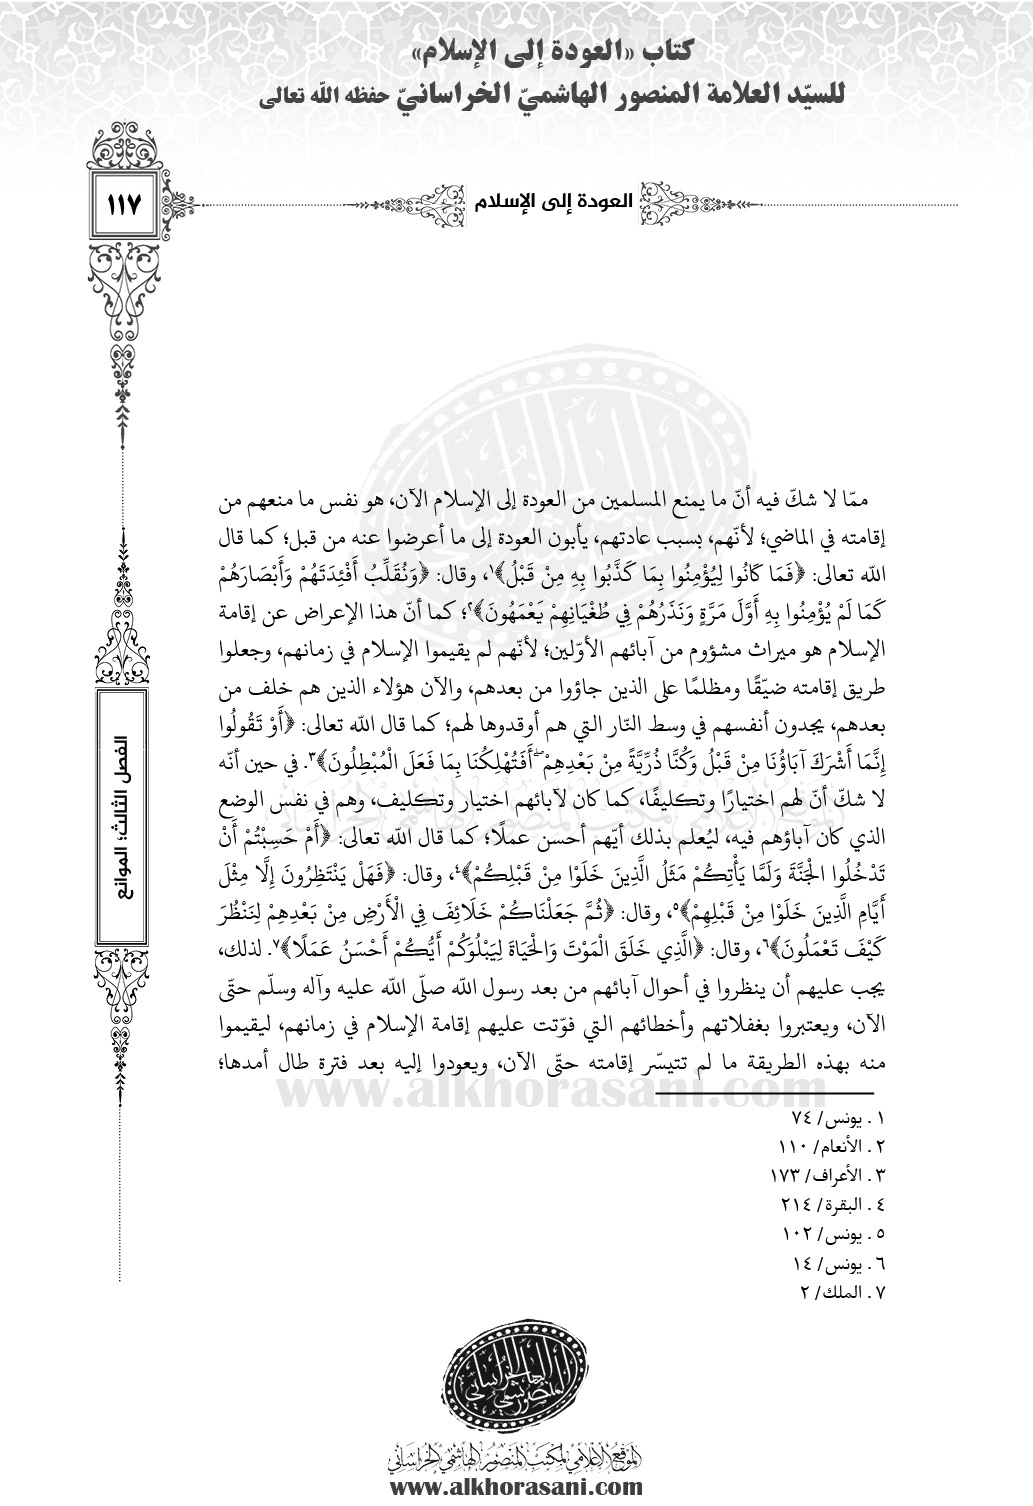 كتاب «العودة إلى الإسلام»
للسيّد العلامة المنصور الهاشميّ الخراسانيّ حفظه الله تعالى
١١٧
العودة إلى الإسلام
ممّا لا شكّ فيه أنّ ما يمنع المسلمين من العودة إلى الإسلام الآن، هو نفس ما منعهم من
إقامته في الماضي؛ لأنّهم، بسبب عادتهم، يأبون العودة إلى ما أعرضوا عنه من قبل؛ كما قال
الله تعالى: ﴿فَمَا كَانُوا لِيُؤْمِنُوا بِمَا كَذَّبُوا بِهِ مِنْ قَبْلُ﴾١، وقال: ﴿وَنُقَلِّبُ أَفْئِدَتَهُمْ وَأَبْصَارَهُمْ
كَمَا لَمْ يُؤْمِنُوا بِهِ أَوَّلَ مَرَّةٍ وَنَذَرُهُمْ فِي طُغْيَانِهِمْ يَعْمَهُونَ﴾٢؛ كما أنّ هذا الإعراض عن إقامة
الإسلام هو ميراث مشؤوم من آبائهم الأوّلين؛ لأنّهم لم يقيموا الإسلام في زمانهم، وجعلوا
طريق إقامته ضيّقًا ومظلمًا على الذين جاؤوا من بعدهم، والآن هؤلاء الذين هم خلف من
بعدهم، يجدون أنفسهم في وسط النّار التي هم أوقدوها لهم؛ كما قال الله تعالى: ﴿أَوْ تَقُولُوا
إِنَّمَا أَشْرَكَ آبَاؤُنَا مِنْ قَبْلُ وَكُنَّا ذُرِّيَّةً مِنْ بَعْدِهِمْ ۖ أَفَتُهْلِكُنَا بِمَا فَعَلَ الْمُبْطِلُونَ﴾٣. في حين أنّه
لا شكّ أنّ لهم اختيارًا وتكليفًا، كما كان لآبائهم اختيار وتكليف، وهم في نفس الوضع
الذي كان آباؤهم فيه، ليُعلم بذلك أيّهم أحسن عملًا؛ كما قال الله تعالى: ﴿أَمْ حَسِبْتُمْ أَنْ
تَدْخُلُوا الْجَنَّةَ وَلَمَّا يَأْتِكُمْ مَثَلُ الَّذِينَ خَلَوْا مِنْ قَبْلِكُمْ﴾٤، وقال: ﴿فَهَلْ يَنْتَظِرُونَ إِلَّا مِثْلَ
أَيَّامِ الَّذِينَ خَلَوْا مِنْ قَبْلِهِمْ﴾٥، وقال: ﴿ثُمَّ جَعَلْنَاكُمْ خَلَائِفَ فِي الْأَرْضِ مِنْ بَعْدِهِمْ لِنَنْظُرَ
كَيْفَ تَعْمَلُونَ﴾٦، وقال: ﴿الَّذِي خَلَقَ الْمَوْتَ وَالْحَيَاةَ لِيَبْلُوَكُمْ أَيُّكُمْ أَحْسَنُ عَمَلًا﴾٧. لذلك،
يجب عليهم أن ينظروا في أحوال آبائهم من بعد رسول الله صلّى الله عليه وآله وسلّم حتّى
الآن، ويعتبروا بغفلاتهم وأخطائهم التي فوّتت عليهم إقامة الإسلام في زمانهم، ليقيموا
منه بهذه الطريقة ما لم تتيسّر إقامته حتّى الآن، ويعودوا إليه بعد فترة طال أمدها؛
www.alkhorasani.com
١ . يونس/ ٧٤
٢ . الأنعام/ ١١٠
٣ . الأعراف/ ١٧٣
٤ . البقرة/ ٢١٤
٥ . يونس/ ١٠٢
٦ . يونس/ ١٤
٧ . الملك/ ٢
الفصل الثالث؛ الموانع
المنصور الهاشمي الخراساني
الموقع الإعلامي لمكتب المنصور الهاشمي الخراساني
www.alkhorasani.com